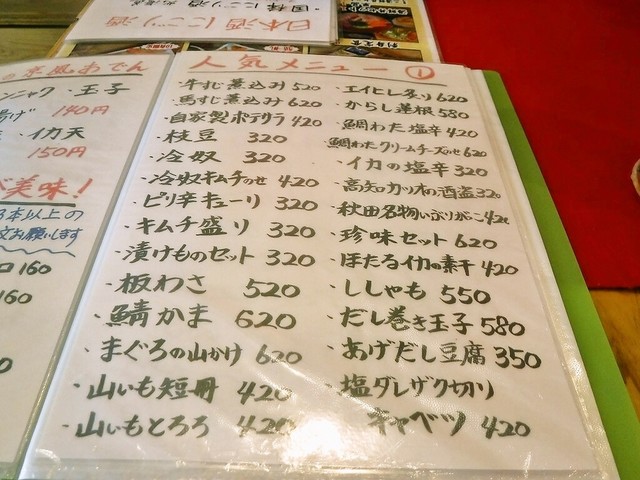 日本酒にごり酒
の京風おでん
ンニャク・玉子
揚げ 140円
・イカ天
150円
が美味!
3本以上の
文お願いします
160
160
人気メニュー ①
・牛すじ煮込み 520
・馬すじ煮込み 620
・自家製ポテサラ 420
・枝豆 320
・冷奴 320
・冷奴キムチのせ 420
・ピリ辛キューリ 320
・キムチ盛り 320
・漬けものセット 320
・板わさ 520
・鯖かま 620
・まぐろの山かけ 620
・山いも短冊 420
・山いもとろろ 420
・エイヒレ炙り 620
・からし蓮根 580
・鯛わた塩辛 420
・鯛わたクリームチーズのせ 620
・イカの塩辛 320
・高知のカツオの酒盗 320
・秋田名物いぶりがっこ 420
・珍味セット 620
・ほたるイカの素干 420
・ししゃも 550
・だし巻き玉子 580
・あげだし豆腐 350
・塩ダレザク切り
キャベツ 420